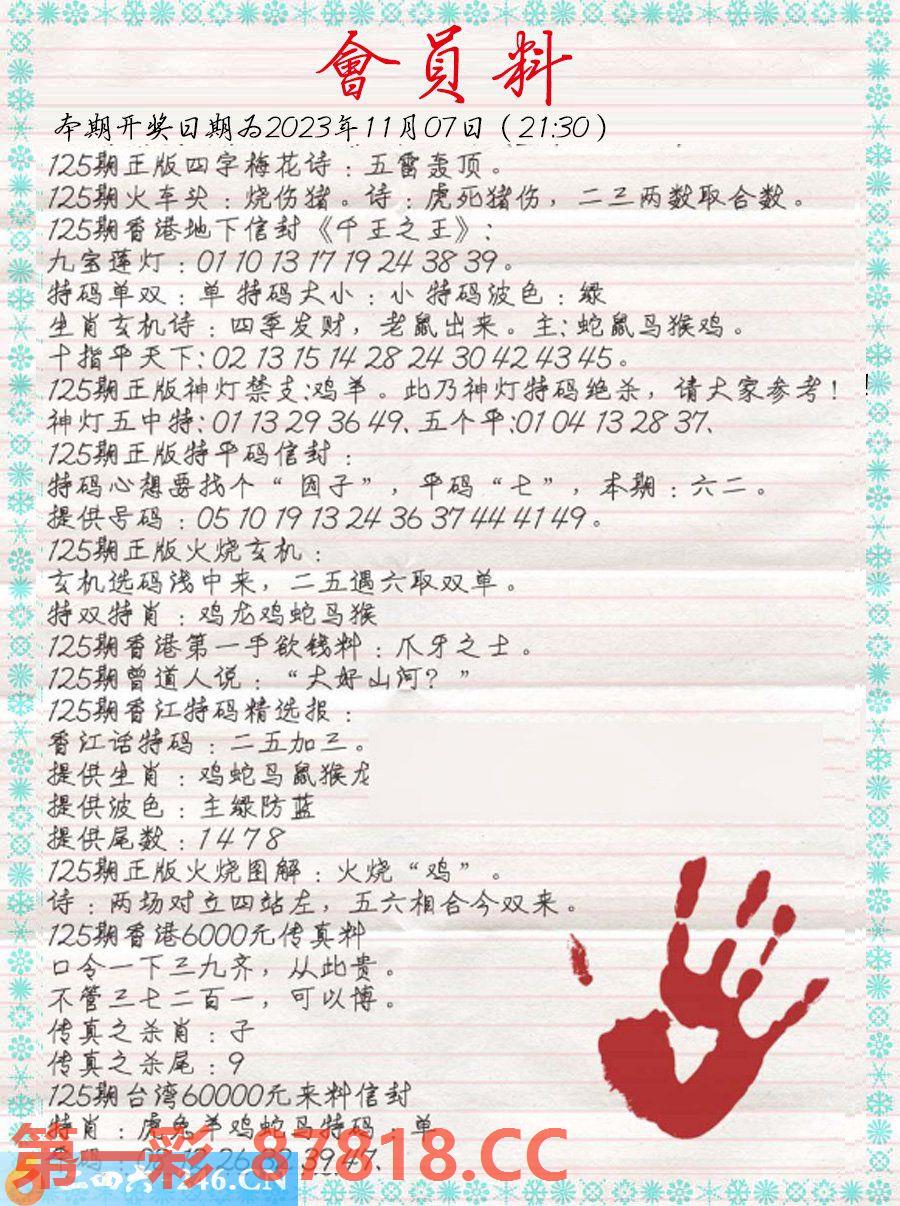 會員料
本期开奖日期为2023年11月07日（21:30）
125期正版四字梅花诗：五雷轰顶。
125期火车头：烧伤猪。诗：虎死猪伤，二三两数取合数。
125期香港地下信封《千王之王》：
九宝莲灯：01 10 13 17 19 24 38 39。
特码单双：单 特码大小：小 特码波色：绿
生肖玄机诗：四季发财，老鼠出来。主：蛇鼠马猴鸡。
十指平天下：02 13 15 14 28 24 30 42 43 45。
125期正版神灯禁支：鸡羊。此乃神灯特码绝杀，请大家参考！！
神灯五中特：01 13 29 36 49、五个平：01 04 13 28 37、
125期正版特平码信封：
特码心想要找个“ 因子”，平码“七”，本期：六二。
提供号码：05 10 19 13 24 36 37 44 41 49。
125期正版火烧玄机：
玄机选码浅中来，二五遇六取双单。
特双特肖：鸡龙鸡蛇马猴
125期香港第一手欲钱料：爪牙之士。
125期曾道人说：“大好山河？”
125期香江特码精选报：
香江话特码：二五加三。
提供生肖：鸡蛇马鼠猴龙
提供波色：主绿防蓝
提供尾数：1 4 7 8
125期正版火烧图解：火烧“鸡”。
诗：两场对立四站左，五六相合今双来。
125期香港6000元传真料
口令一下三九齐，从此贵。
不管三七二百一，可以博。
传真之杀肖：子
传真之杀尾：9
125期台湾60000元来料信封
特肖：虎兔羊鸡蛇马特码：单
26 32 39 47、
第一彩 87818.CC
246.CN